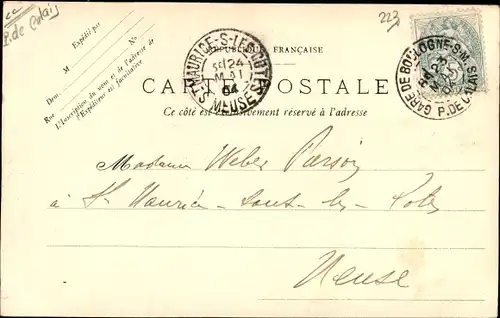 cc
P. de Calais
223
Expédié par
M
N°
Dem.
Rue
L'Inscription du nom et de l'adresse de
l'Expéditeur est facultative
ST MAURICE-S-LES-COTES
24
MAI
04
MEUSE
RÉPUBLIQUE FRANÇAISE
CARTE POSTALE
Ce côté est exclusivement réservé à l'adresse
GARE DE BOULOGNE-S-M
23
P. DE CALAIS
5
Madame Weber
à St Maurice-sous-les-Côtes
Meuse